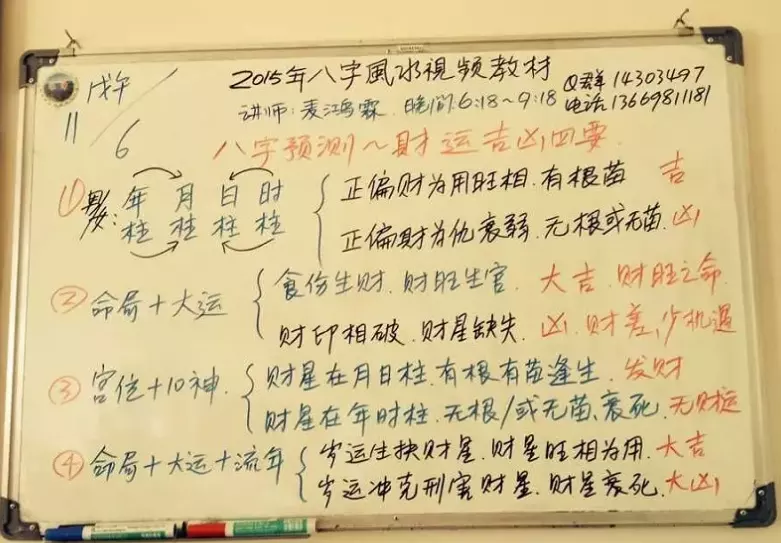 戊午
11/6
2015年八字風水視频教材
Q群 14303497
讲师:麦鸿霖. 晚间:6:18~9:18
电话:13669811181
八字预测~财运吉凶四要
① 男女: 年柱 月柱 日柱 时柱
正偏财为用旺相.有根苗 吉
正偏财为仇衰弱.无根或无苗.凶
② 命局+大运
食伤生财.财旺生官. 大吉.财旺之命.
财印相破.财星缺失. 凶.财差,少机遇
③ 宫位+10神.
财星在月日柱.有根有苗逢生. 发财
财星在年时柱.无根/或无苗、衰死.无财运
④ 命局+大运+流年
岁运生扶财星.财星旺相为用.大吉
岁运冲克刑害财星.财星衰死.大凶